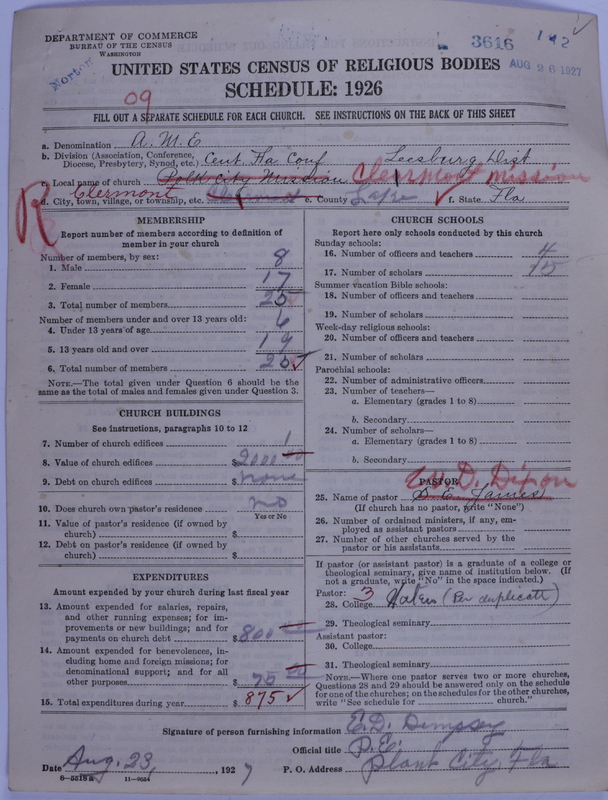 DEPARTMENT OF COMMERCE
BUREAU OF THE CENSUS
WASHINGTON
Norton
3616
142
AUG 26 1927
UNITED STATES CENSUS OF RELIGIOUS BODIES
SCHEDULE: 1926
09
FILL OUT A SEPARATE SCHEDULE FOR EACH CHURCH. SEE INSTRUCTIONS ON THE BACK OF THIS SHEET
a. Denomination A. M. E
b. Division (Association, Conference, Diocese, Presbytery, Synod, etc.) Cent. Fla Conf Leesburg Dist
c. Local name of church Polk City Mission Clermont mission
R
d. City, town, village, or township, etc. Clermont e. County Lake f. State Fla
MEMBERSHIP
Report number of members according to definition of
member in your church
Number of members, by sex:
1. Male 8
2. Female 17
3. Total number of members 25
Number of members under and over 13 years old:
4. Under 13 years of age 6
5. 13 years old and over 19
6. Total number of members 25 ✓
NOTE.—The total given under Question 6 should be the
same as the total of males and females given under Question 3.
CHURCH BUILDINGS
See instructions, paragraphs 10 to 12
7. Number of church edifices 1
8. Value of church edifices $2000.00
9. Debt on church edifices $ None
10. Does church own pastor's residence no
Yes or No
11. Value of pastor's residence (if owned by
church) $
12. Debt on pastor's residence (if owned by
church) $
EXPENDITURES
Amount expended by your church during last fiscal year
13. Amount expended for salaries, repairs,
and other running expenses; for im-
provements or new buildings; and for
payments on church debt $800
14. Amount expended for benevolences, in-
cluding home and foreign missions; for
denominational support; and for all
other purposes $75 00
15. Total expenditures during year $875 ✓
CHURCH SCHOOLS
Report here only schools conducted by this church
Sunday schools:
16. Number of officers and teachers 4
17. Number of scholars 15
Summer vacation Bible schools:
18. Number of officers and teachers
19. Number of scholars
Week-day religious schools:
20. Number of officers and teachers
21. Number of scholars
Parochial schools:
22. Number of administrative officers
23. Number of teachers—
a. Elementary (grades 1 to 8)
b. Secondary
24. Number of scholars—
a. Elementary (grades 1 to 8)
b. Secondary
PASTOR
W. D. Dixon
25. Name of pastor S. E. James
(If church has no pastor, write "None")
26. Number of ordained ministers, if any, em-
ployed as assistant pastors
27. Number of other churches served by the
pastor or his assistants
If pastor (or assistant pastor) is a graduate of a college or
theological seminary, give name of institution below. (If
not a graduate, write "No" in the space indicated.)
Pastor: 3
28. College (Per duplicate)
29. Theological seminary
Assistant pastor:
30. College
31. Theological seminary
NOTE.—Where one pastor serves two or more churches,
Questions 28 and 29 should be answered only on the schedule
for one of the churches; on the schedules for the other churches,
write "See schedule for church."
Signature of person furnishing information E. D. Dempsey
Official title P. E.
Date Aug. 23, 1927 P. O. Address Plant City, Fla
8—5518a 11—9054